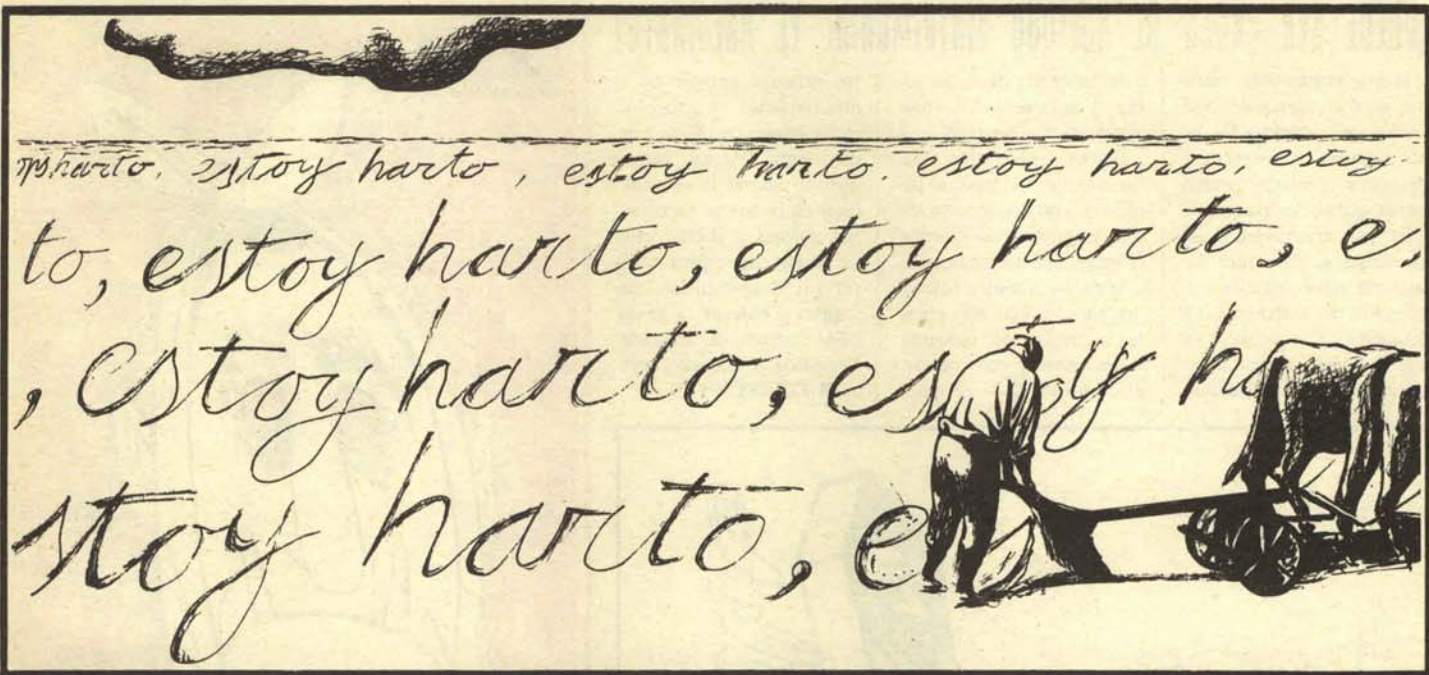 harto, estoy harto, estoy harto. estoy harto, estoy
to, estoy harto, estoy harto, e
, estoy harto, estoy ha
stoy harto, e